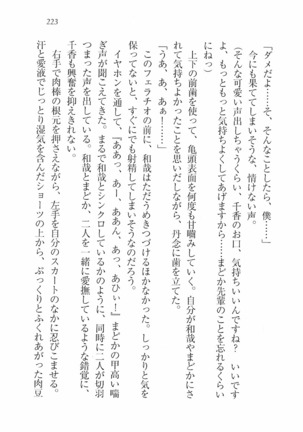 223
「ダメだよ……そ、そんなことしたら、僕……」
今にも果ててしまいそうな、情けない声。
（そんな可愛い声出しちゃうくらい、千香のお口、気持ちいいんですね？　いいです
よ、もっともっと気持ちよくしてあげますから……まどか先輩のことを忘れるくらい
にねっ）
上下の前歯を使って、亀頭表面を何度も甘噛みしていく。自分が和哉やまどかにさ
れて気持ちよかったことを思いだしながら、丹念に歯を立てた。
「うあ、あ、あぁ……」
このフェラチオの前に、和哉はただうめきつづけるほかなかった。しっかりと気を
保ってないと、すぐにでも射精してしまいそうなのだろう。
イヤホンを通して、「ああっ、あー、ああん、あっ、あひぃ！」まどかの甲高い喘
ぎ声が聞こえてきた。まるで和哉とシンクロしているかのように、同時に二人が切羽
つまった声を出している。和哉とまどか、二人を一緒に愛撫しているような錯覚に、
千香も興奮を抑えきれない。
右手で肉棒の根元を押さえながら、左手を自分のスカートのなかに忍びこませる。
汗と愛液でじっとり湿気を含んだショーツの上から、ぷっくりとふくれあがった肉豆